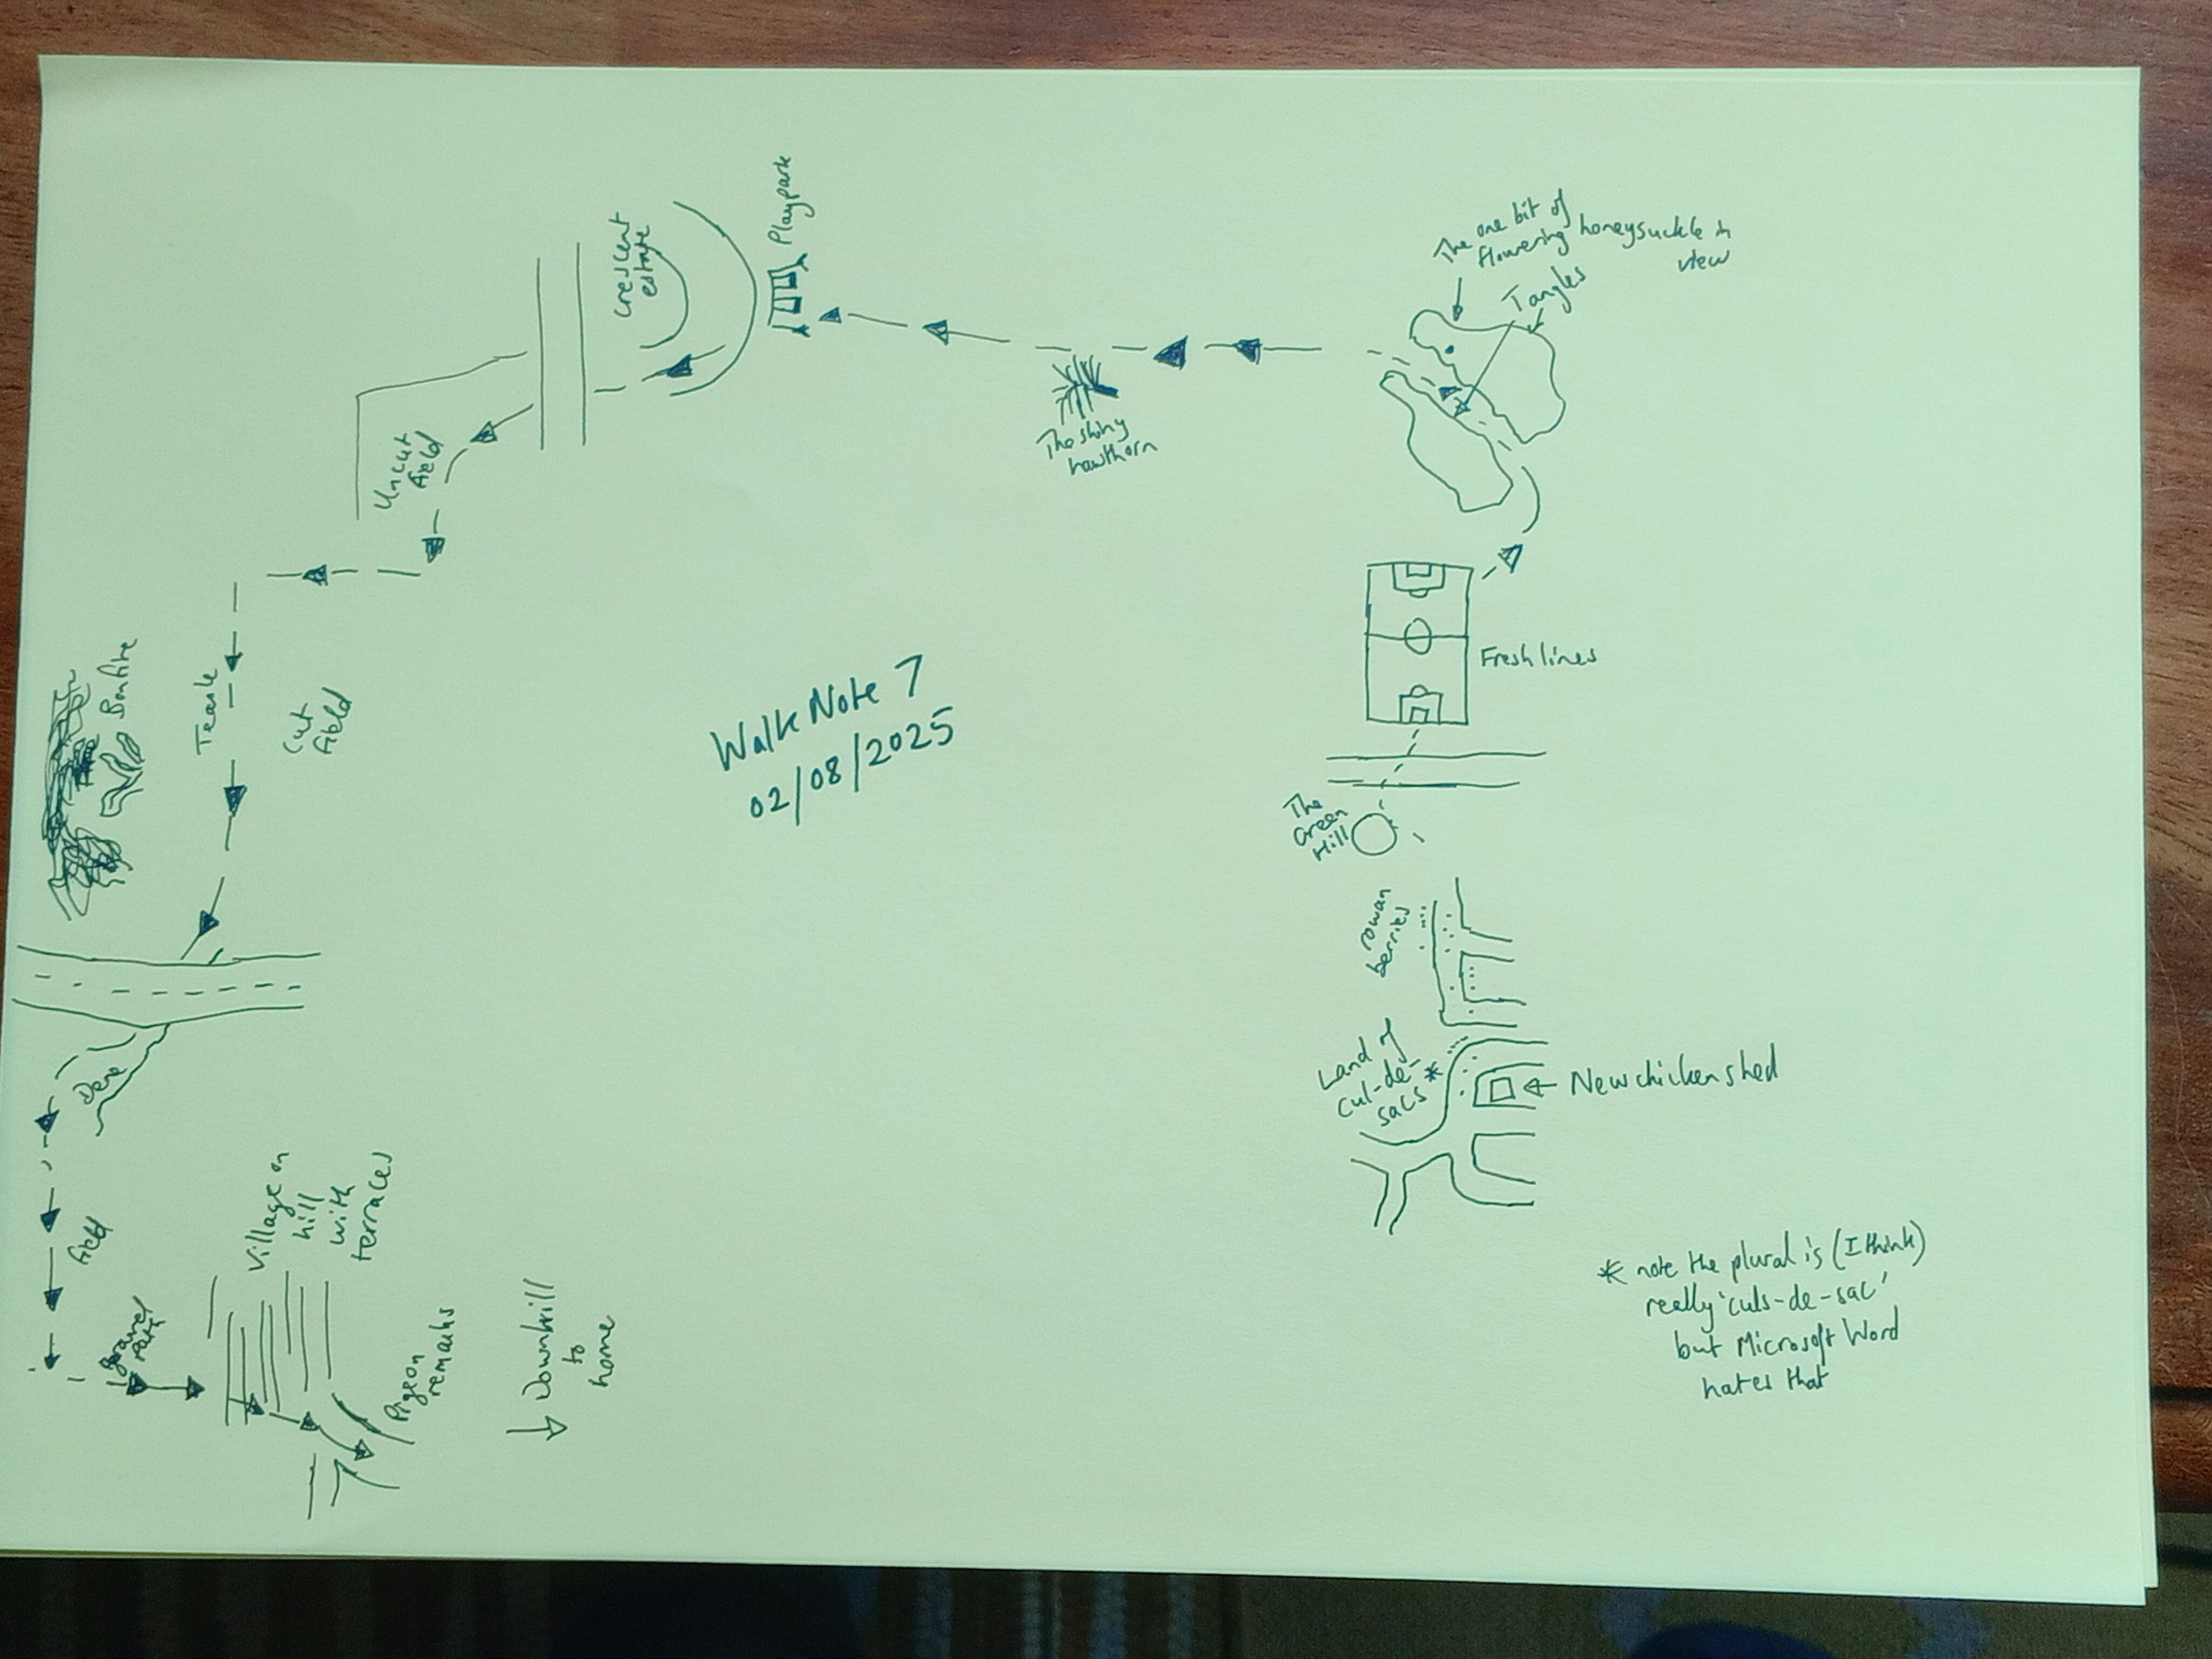 Walk Note 7
02/08/2025
New chicken shed
Land of
cul-de-
sacs *
rowan
berries
The
Green
Hill
Fresh lines
Tangles
The one bit of
flowering honeysuckle in
view
The shiny
hawthorn
Playpark
Crescent
estate
Uncut
field
Cut
field
Teasle
Bonfire
Dene
field
gravel
path
Village on
hill
with
terraces
Pigeon
remains
Downhill
to
home
* note the plural is (I think)
really 'culs-de-sac'
but Microsoft Word
hates that